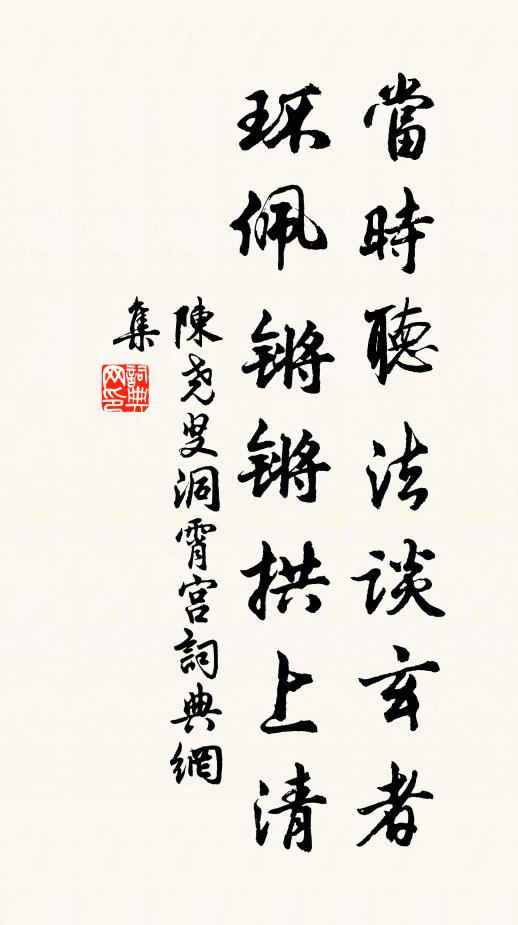 當時聽法談玄者
環佩鏘鏘拱上清
陳堯叟洞霄宮詞典網
集
詞典网印